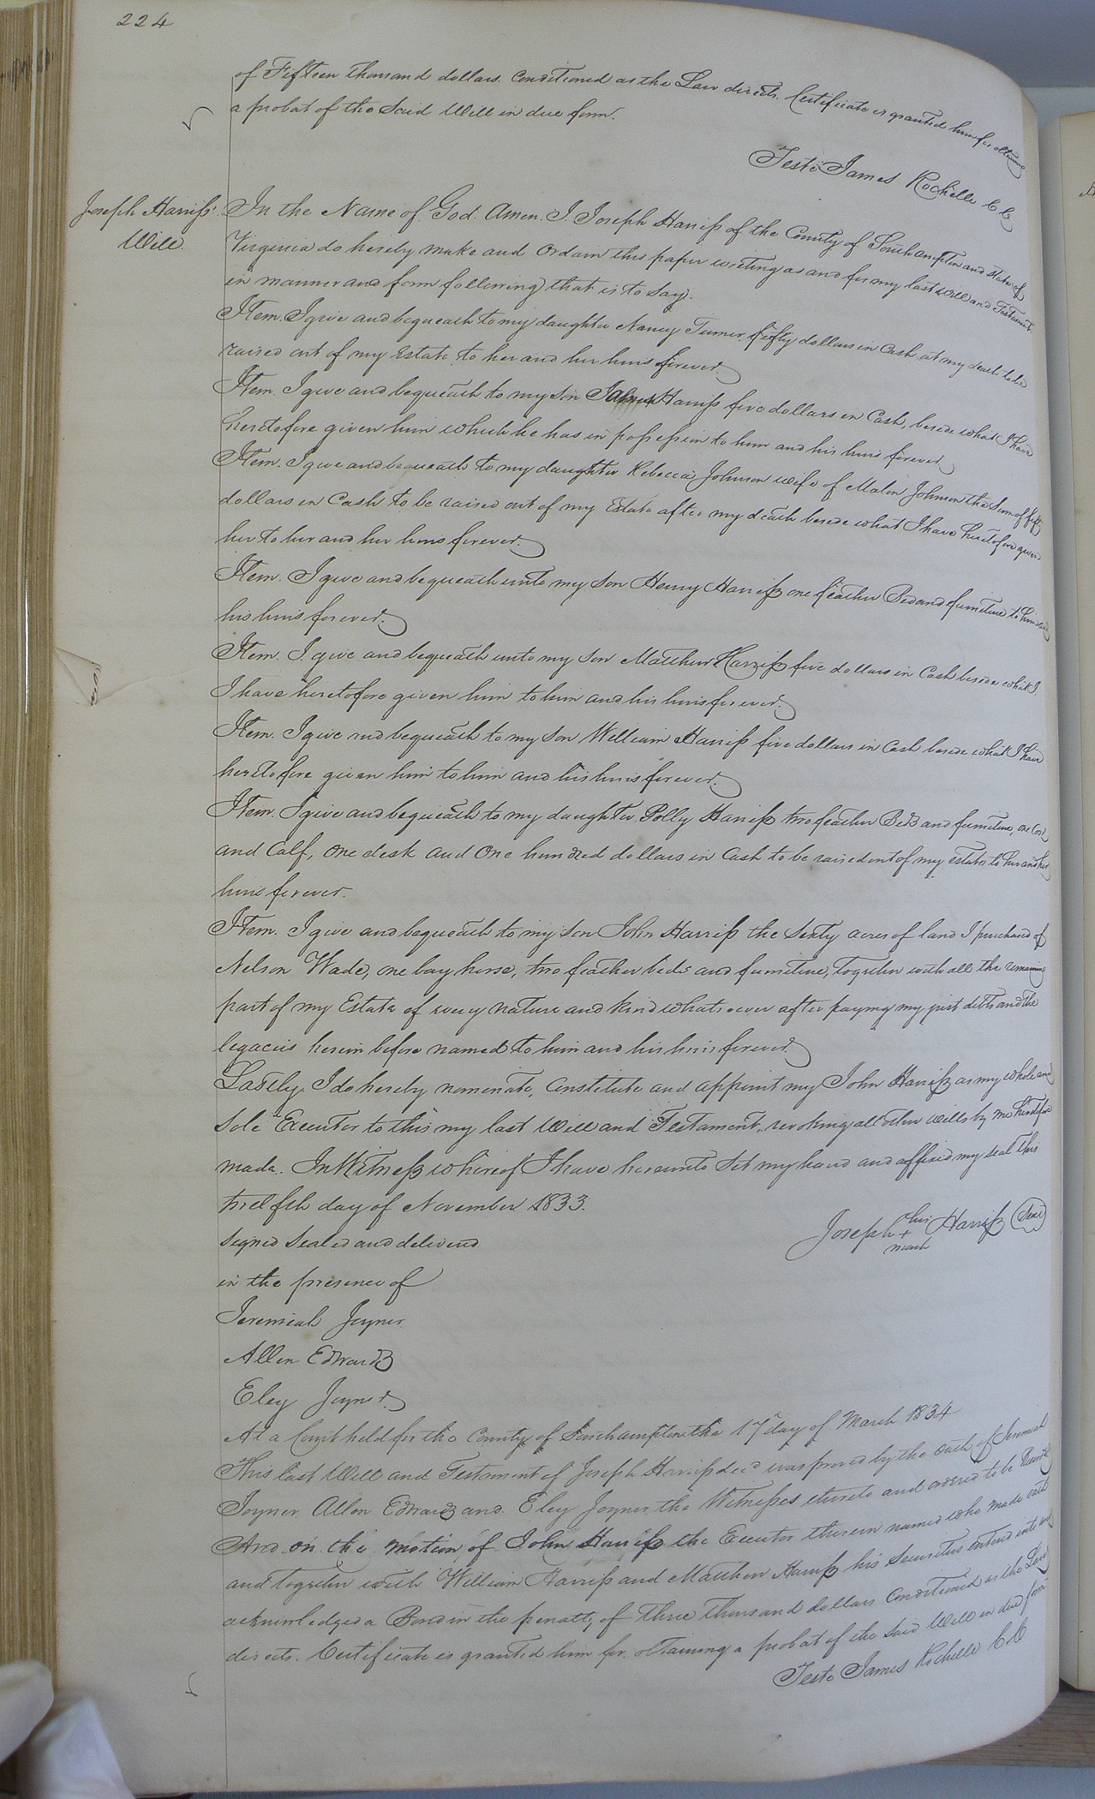 224
of Fifteen thousand dollars. Conditioned as the Law directs. Certificate is granted him for obtaining
a probat of the Said Will in due form.
Teste James Rochelle C C
Joseph Harriss'
Will
In the Name of God. Amen. I Joseph Harriss of the County of Southampton and State of
Virginia do hereby make and ordain this paper writing as and for my last will and Testament
in manner and form following, that is to say.
Item. I give and bequeath to my daughter Nancy Turner fifty dollars in Cash at my death to be
raised out of my Estate to her and her heirs forever.
Item. I give and bequeath to my son Harriss five dollars in Cash, beside what I have
heretofore given him which he has in possession to him and his heirs forever
Item. I give and bequeath to my daughter Rebecca Johnson wife of Malon Johnson the Sum of fifty
dollars in Cash to be raised out of my Estate after my death beside what I have heretofore given
her to her and her heirs forever.
Item. I give and bequeath unto my son Henry Harriss one feather Bed and furniture to him and
his heirs forever.
Item. I give and bequeath unto my son Matthew Harriss five dollars in Cash beside what I
I have heretofore given him to him and his heirs forever.
Item. I give and bequeath to my son William Harriss five dollars in Cash beside what I have
heretofore given him to him and his heirs forever.
Item. I give and bequeath to my daughter Polly Harriss two feather Beds and furniture, one Cow
and Calf, one desk and One hundred dollars in Cash to be raised out of my Estate to her and her
heirs forever.
Item. I give and bequeath to my son John Harriss the Sixty acres of land I purchased of
Nelson Wade, one bay horse, two feather beds and furniture, together with all the remaining
part of my Estate of every nature and kind whatsoever after paying my just debts and the
legacies herein before named to him and his heirs forever.
Lastly, I do hereby nominate, Constitute and appoint my John Harriss as my whole and
Sole Executor to this my last Will and Testament, revoking all other wills by me heretofore
made. In Witness whereof I have hereunto Set my hand and affixed my seal this
twelfth day of November 1833.
Joseph his + mark Harriss (Seal)
Signed Sealed and delivered
in the presence of
Jeremiah Joyner
Allen Edwards
Eley Joyner.
At a Court held for the County of Southampton the 17th day of March 1834
This last Will and Testament of Joseph Harriss dec'd was proved by the oath of Jeremiah
Joyner Allen Edwards and Eley Joyner the Witnesses thereto and ordered to be Recorded
And on the motion of John Harriss the Executor therein named who made oath
and together with William Harriss and Matthew Harriss his Securities entered into and
acknowledged a Bond in the penalty of Three thousand dollars Conditioned as the Law
directs. Certificate is granted him for obtaining a probat of the Said Will in due form
Teste James Rochelle C C